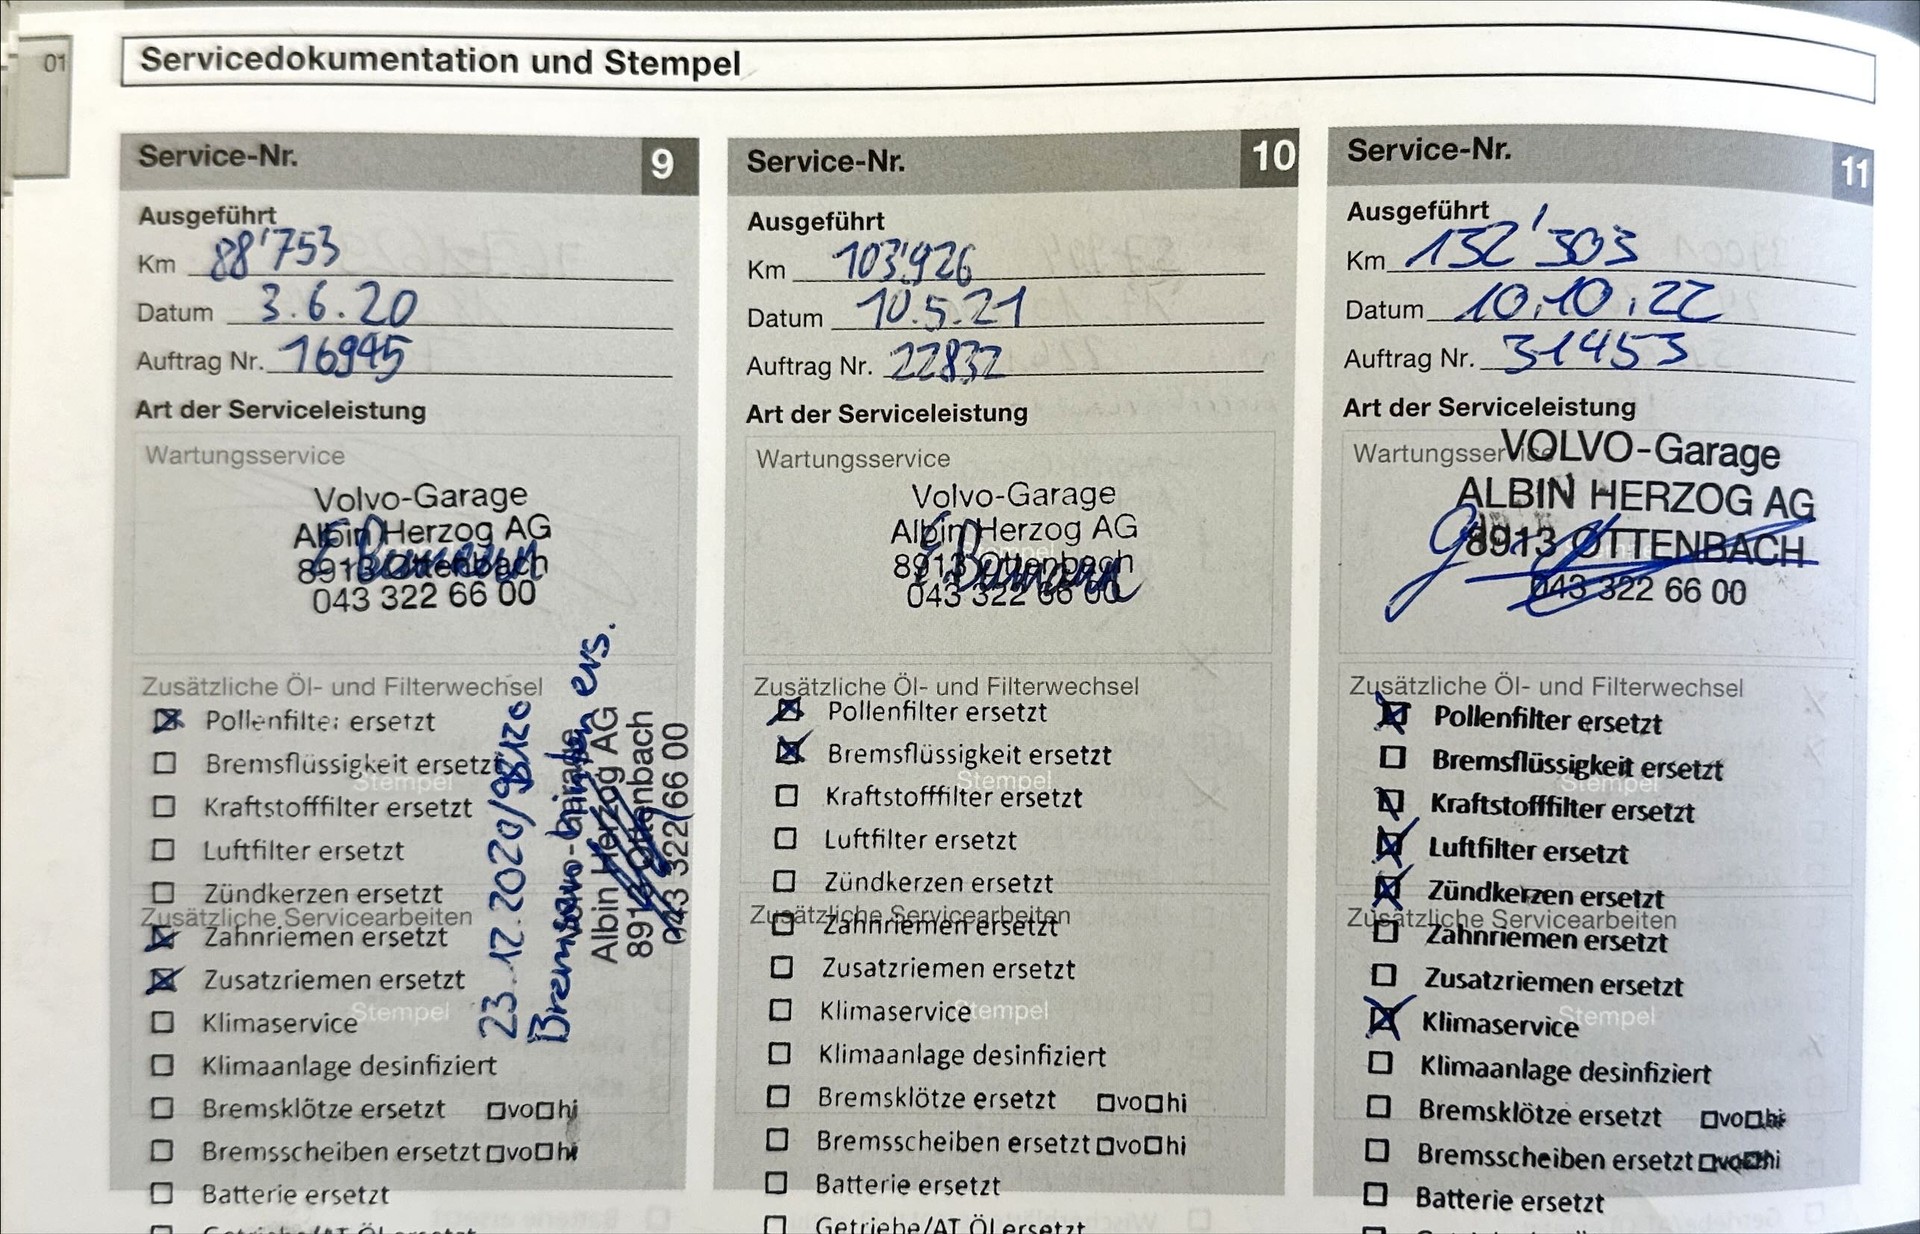 01
Servicedokumentation und Stempel
Service-Nr. 9
Ausgeführt
Km 88'753
Datum 3.6.20
Auftrag Nr. 16945
Art der Serviceleistung
Wartungsservice
Volvo-Garage
Albin Herzog AG
8913 Ottenbach
043 322 66 00
Zusätzliche Öl- und Filterwechsel
Pollenfilter ersetzt
Bremsflüssigkeit ersetzt
Stempel
Kraftstofffilter ersetzt
Luftfilter ersetzt
Zündkerzen ersetzt
Zusätzliche Servicearbeiten
Zahnriemen ersetzt
Zusatzriemen ersetzt
Stempel
Klimaservice
Klimaanlage desinfiziert
Bremsklötze ersetzt vo hi
Bremsscheiben ersetzt vo hi
Batterie ersetzt
Getriebe/AT Öl ersetzt
23.12.2020/98120
Bremsen hinten ers.
Volvo-Garage
Albin Herzog AG
8913 Ottenbach
043 322 66 00
Service-Nr. 10
Ausgeführt
Km 103'926
Datum 10.5.21
Auftrag Nr. 22832
Art der Serviceleistung
Wartungsservice
Volvo-Garage
Albin Herzog AG
8913 Ottenbach
043 322 66 00
Zusätzliche Öl- und Filterwechsel
Pollenfilter ersetzt
Bremsflüssigkeit ersetzt
Stempel
Kraftstofffilter ersetzt
Luftfilter ersetzt
Zündkerzen ersetzt
Zusätzliche Servicearbeiten
Zahnriemen ersetzt
Zusatzriemen ersetzt
Klimaservice
Stempel
Klimaanlage desinfiziert
Bremsklötze ersetzt vo hi
Bremsscheiben ersetzt vo hi
Batterie ersetzt
Getriebe/AT Öl ersetzt
Service-Nr. 11
Ausgeführt
Km 132'303
Datum 10.10.22
Auftrag Nr. 31453
Art der Serviceleistung
Wartungsservice
VOLVO-Garage
ALBIN HERZOG AG
8913 OTTENBACH
043 322 66 00
Zusätzliche Öl- und Filterwechsel
Pollenfilter ersetzt
Bremsflüssigkeit ersetzt
Stempel
Kraftstofffilter ersetzt
Luftfilter ersetzt
Zündkerzen ersetzt
Zusätzliche Servicearbeiten
Zahnriemen ersetzt
Zusatzriemen ersetzt
Klimaservice
Stempel
Klimaanlage desinfiziert
Bremsklötze ersetzt vo hi
Bremsscheiben ersetzt vo hi
Batterie ersetzt